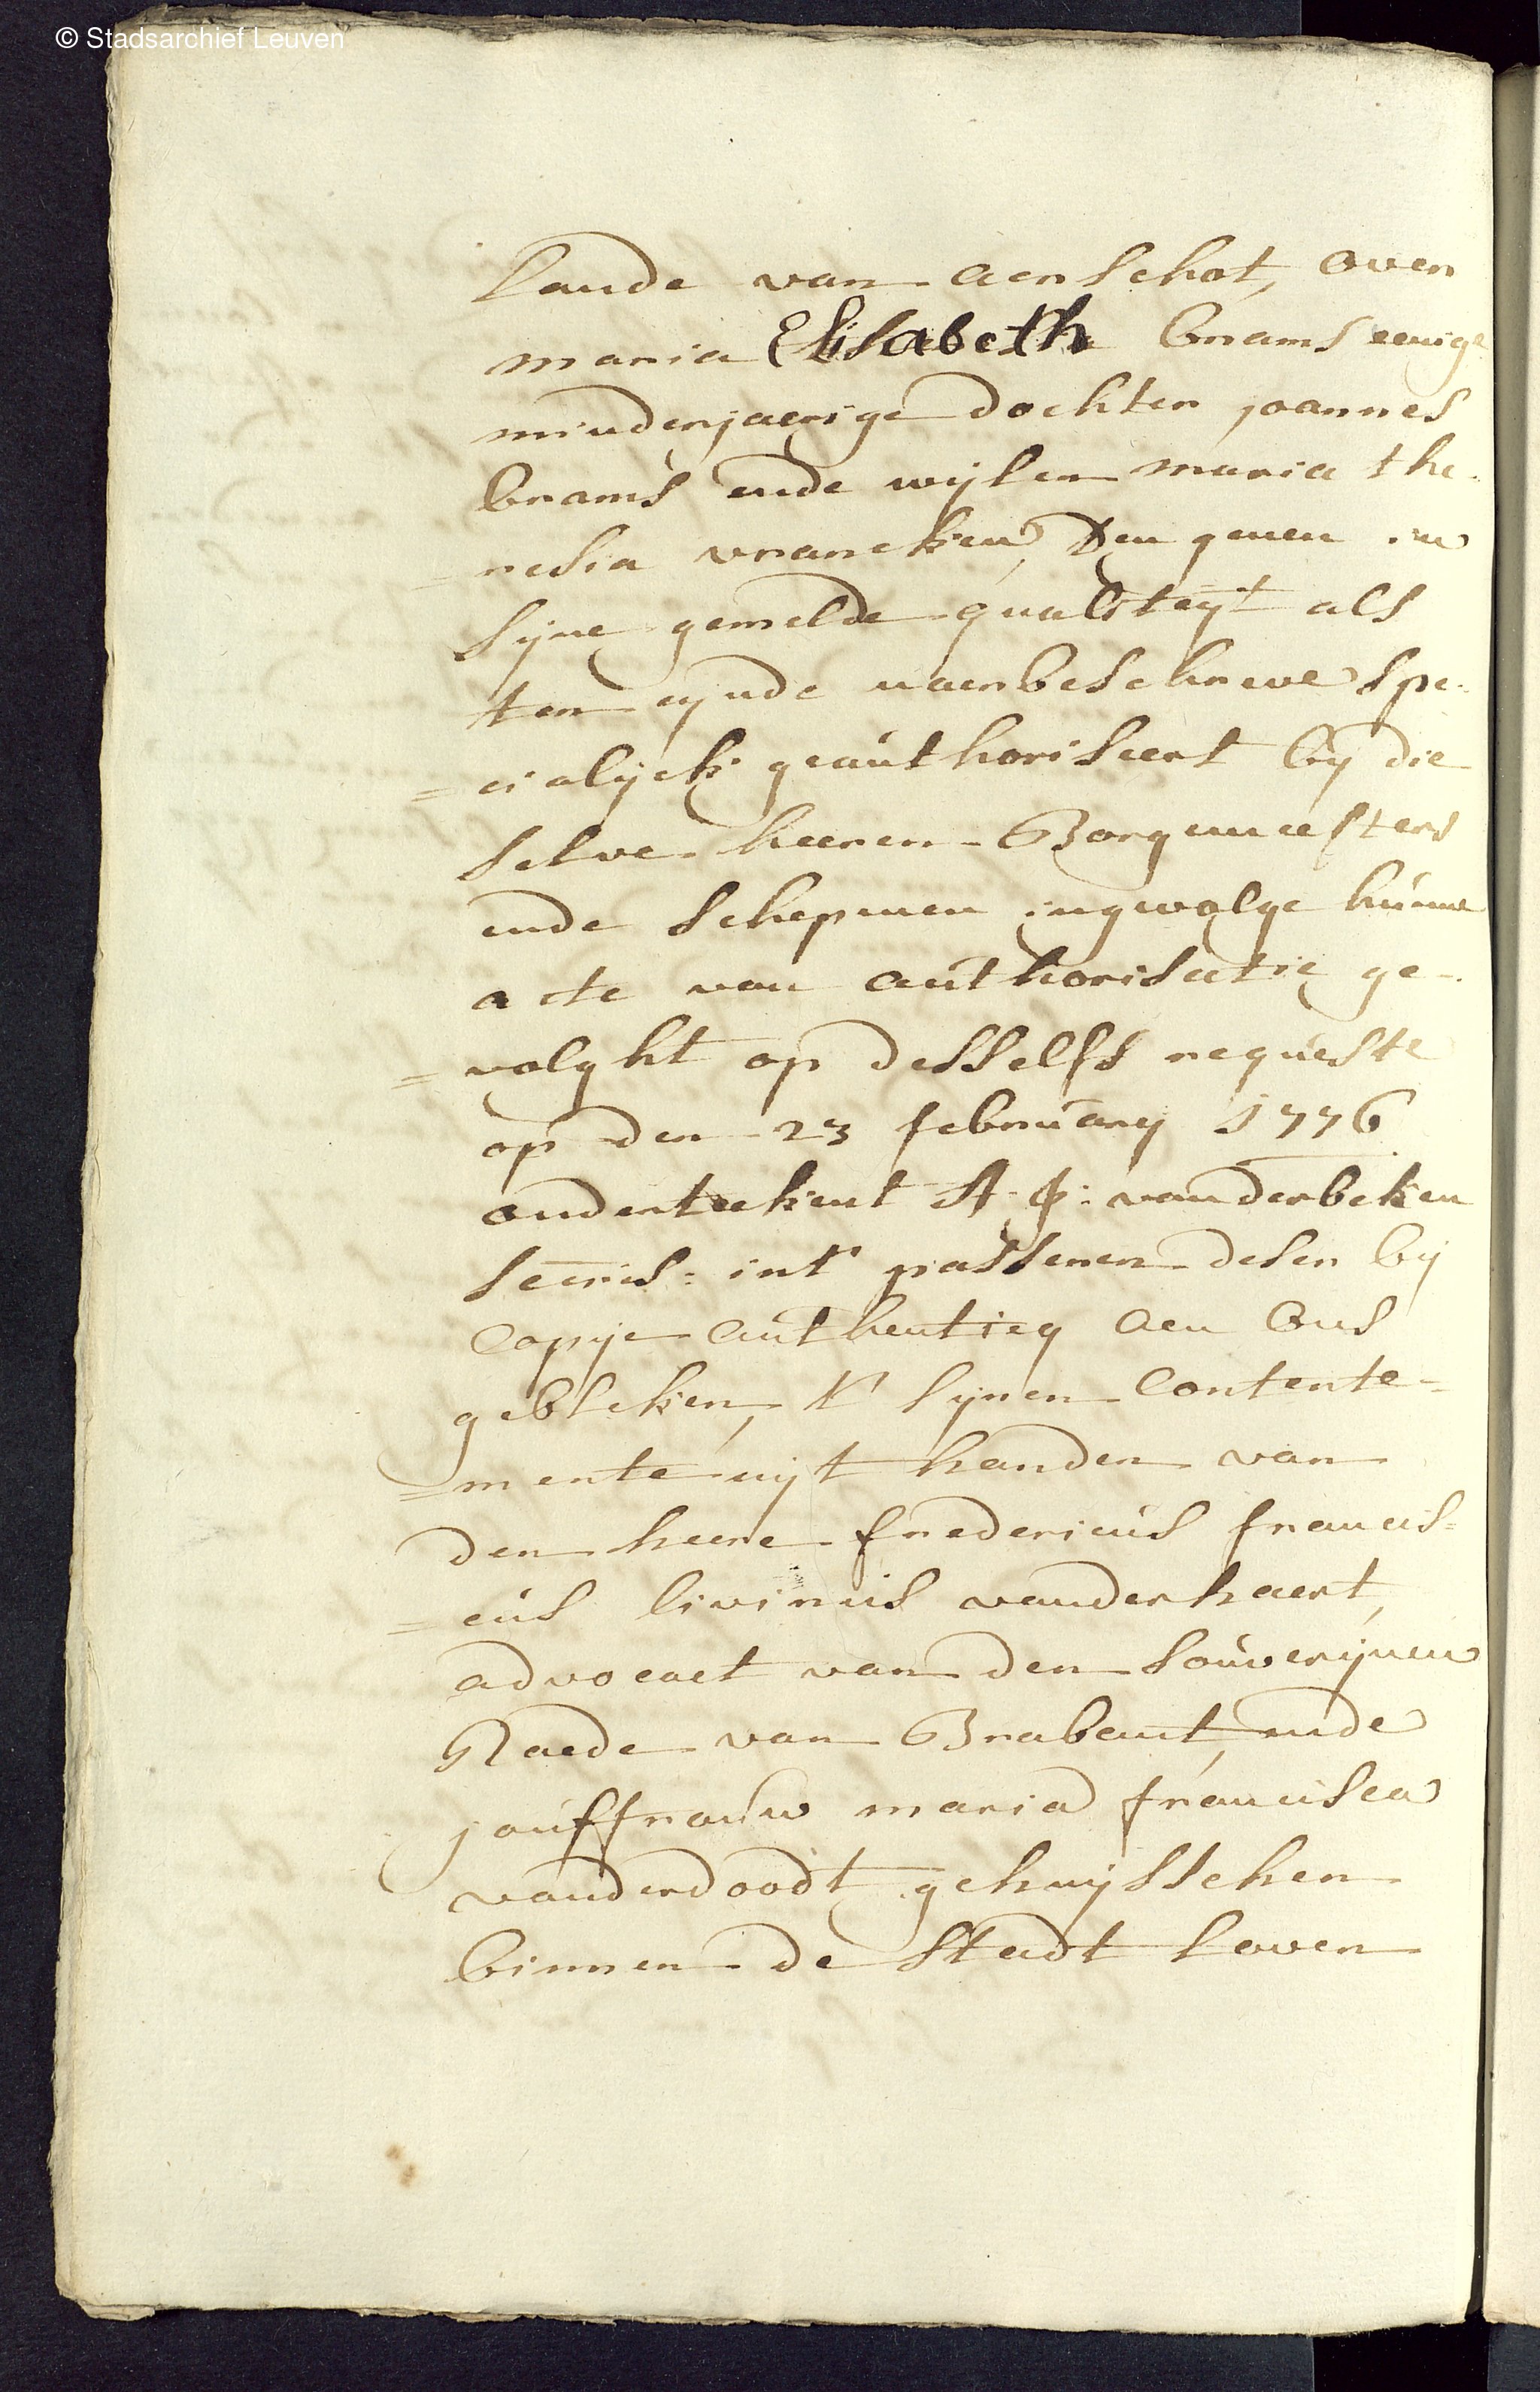 © Stadsarchief Leuven
Lande van aerschot, over
maria Elisabeth brams eenige
minderjaerige dochter joannes
brams ende wijlen maria the-
=resia vrancken, Den genen in
sijne gemelde qualiteijt als
ten eijnde naerbeschreve spe-
=cialijck geauthoriseert bij die
selve heeren Borgemeesters
ende schepenen ingevolge hunne
acte van authorisatie ge-
=volght op desselfs requeste
op den 23 february 1776
onderteekent A. P: vanderbeken
secris: int' passeren deser bij
Copije authenticq aen ons
gebleken, t' sijnen Contente-
=mente uijt handen van
den heere fredericus francis=
=cus livinus vanderhaert,
advocaet van den souverijnen
Raede van Brabant, ende
jouffrouw maria francisca
vanderdoodt gehuijsschen
binnen de stadt Loven